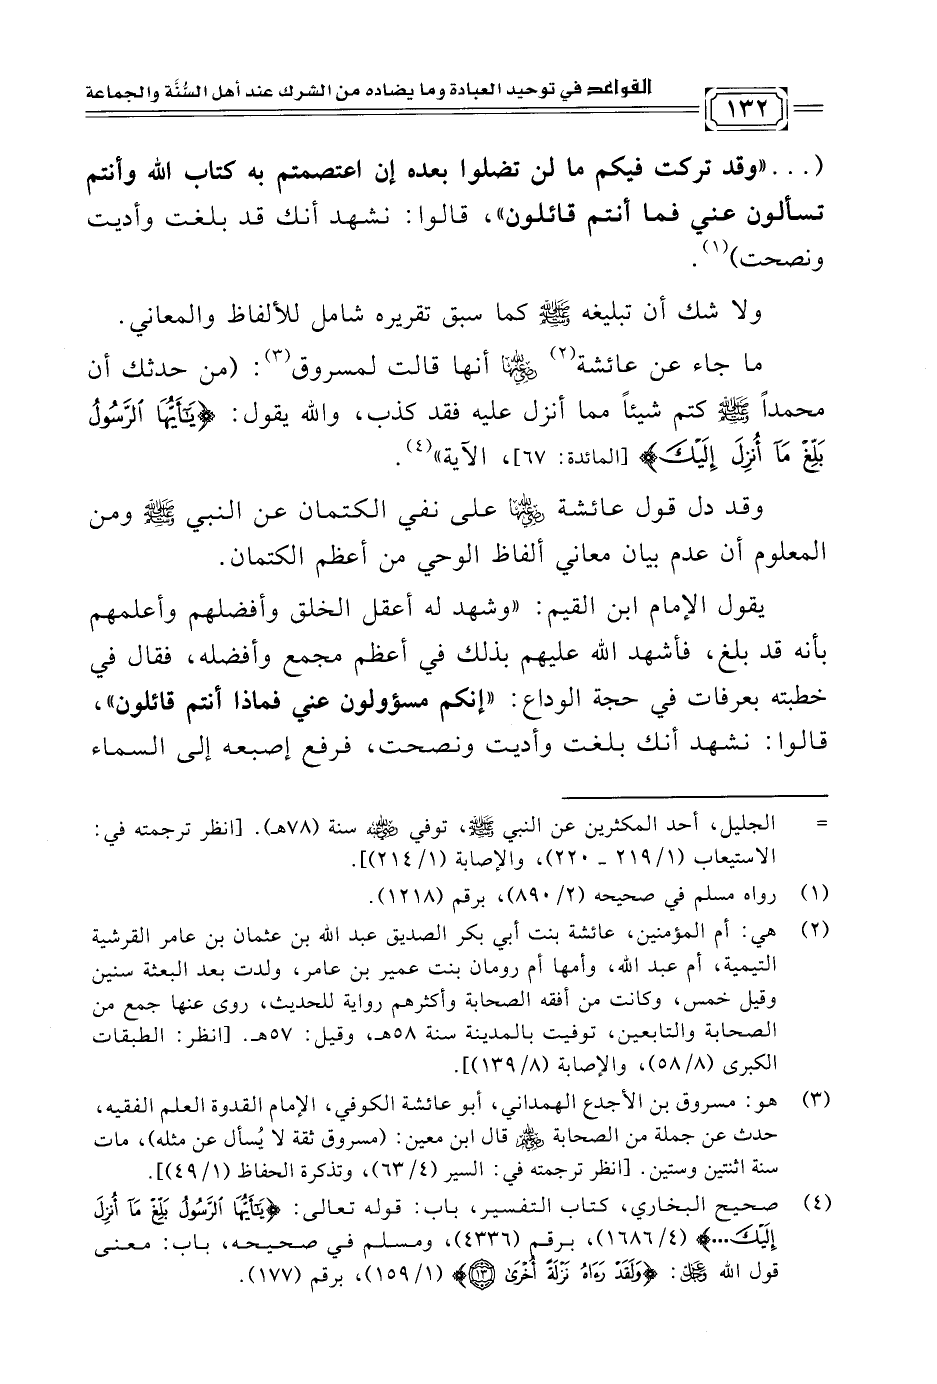 القواعد في توحيد العبادة وما يضاده من الشرك عند أهل السُّنَّة والجماعة
١٣٢
(...«وقد تركت فيكم ما لن تضلوا بعده إن اعتصمتم به كتاب الله وأنتم
تسألون عني فما أنتم قائلون»، قالوا: نشهد أنك قد بلغت وأديت
ونصحت)(١).
ولا شك أن تبليغه ﷺ كما سبق تقريره شامل للألفاظ والمعاني.
ما جاء عن عائشة(٢) رضي الله عنها أنها قالت لمسروق(٣): (من حدثك أن
محمداً ﷺ كتم شيئاً مما أنزل عليه فقد كذب، والله يقول: ﴿يَٰٓأَيُّهَا ٱلرَّسُولُ
بَلِّغْ مَآ أُنزِلَ إِلَيْكَ﴾ [المائدة: ٦٧]، الآية»(٤).
وقد دل قول عائشة رضي الله عنها على نفي الكتمان عن النبي ﷺ ومن
المعلوم أن عدم بيان معاني ألفاظ الوحي من أعظم الكتمان.
يقول الإمام ابن القيم: «وشهد له أعقل الخلق وأفضلهم وأعلمهم
بأنه قد بلغ، فأشهد الله عليهم بذلك في أعظم مجمع وأفضله، فقال في
خطبته بعرفات في حجة الوداع: «إنكم مسؤولون عني فماذا أنتم قائلون»،
قالوا: نشهد أنك بلغت وأديت ونصحت، فرفع إصبعه إلى السماء
= الجليل، أحد المكثرين عن النبي ﷺ، توفي رضي الله عنه سنة (٧٨هـ). [انظر ترجمته في:
الاستيعاب (١/ ٢١٩ ـ ٢٢٠)، والإصابة (١/ ٢١٤)].
(١) رواه مسلم في صحيحه (٢/ ٨٩٠)، برقم (١٢١٨).
(٢) هي: أم المؤمنين، عائشة بنت أبي بكر الصديق عبد الله بن عثمان بن عامر القرشية
التيمية، أم عبد الله، وأمها أم رومان بنت عمير بن عامر، ولدت بعد البعثة سنين
وقيل خمس، وكانت من أفقه الصحابة وأكثرهم رواية للحديث، روى عنها جمع من
الصحابة والتابعين، توفيت بالمدينة سنة ٥٨هـ، وقيل: ٥٧هـ. [انظر: الطبقات
الكبرى (٨/ ٥٨)، والإصابة (٨/ ١٣٩)].
(٣) هو: مسروق بن الأجدع الهمداني، أبو عائشة الكوفي، الإمام القدوة العلم الفقيه،
حدث عن جملة من الصحابة رضي الله عنهم قال ابن معين: (مسروق ثقة لا يُسأل عن مثله)، مات
سنة اثنتين وستين. [انظر ترجمته في: السير (٤/ ٦٣)، وتذكرة الحفاظ (١/ ٤٩)].
(٤) صحيح البخاري، كتاب التفسير، باب: قوله تعالى: ﴿يَٰٓأَيُّهَا ٱلرَّسُولُ بَلِّغْ مَآ أُنزِلَ
إِلَيْكَ...﴾ (٤/ ١٦٨٦)، برقم (٤٣٣٦)، ومسلم في صحيحه، باب: معنى
قول الله عز وجل: ﴿وَلَقَدْ رَءَاهُ نَزْلَةً أُخْرَىٰ ١٣﴾ (١/ ١٥٩)، برقم (١٧٧).